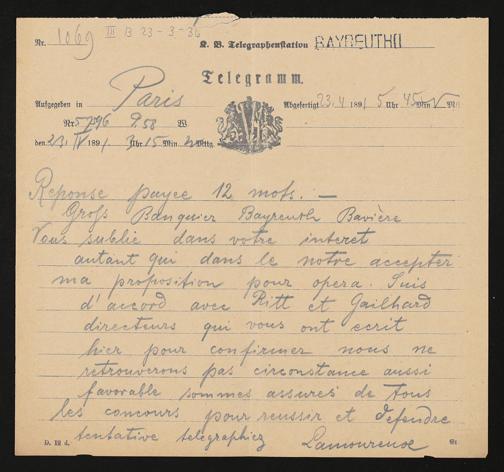 Nr. 1069 III B 23-3-36
K. B. Telegraphenstation BAYREUTH II
Telegramm.
Aufgegeben in Paris Abgefertigt 23.4 1891 5 Uhr 45 Min
Nr. 5796 P. 58 W.
den 23. IV 1891 3 Uhr 15 Min. Mttg.
Reponse payee 12 mots. —
Groß Banquier Bayreuth Bavière
Vous sublie dans votre interet
autant qui dans le notre accepter
ma proposition pour opera. Suis
d'accord avec Ritt et Gailhard
directeurs qui vous ont ecrit
hier pour confirmer nous ne
retrouverons pas circonstance aussi
favorable sommes assures de tous
les concours pour reussir et defendre
tentative telegraphiez Lamoureuse